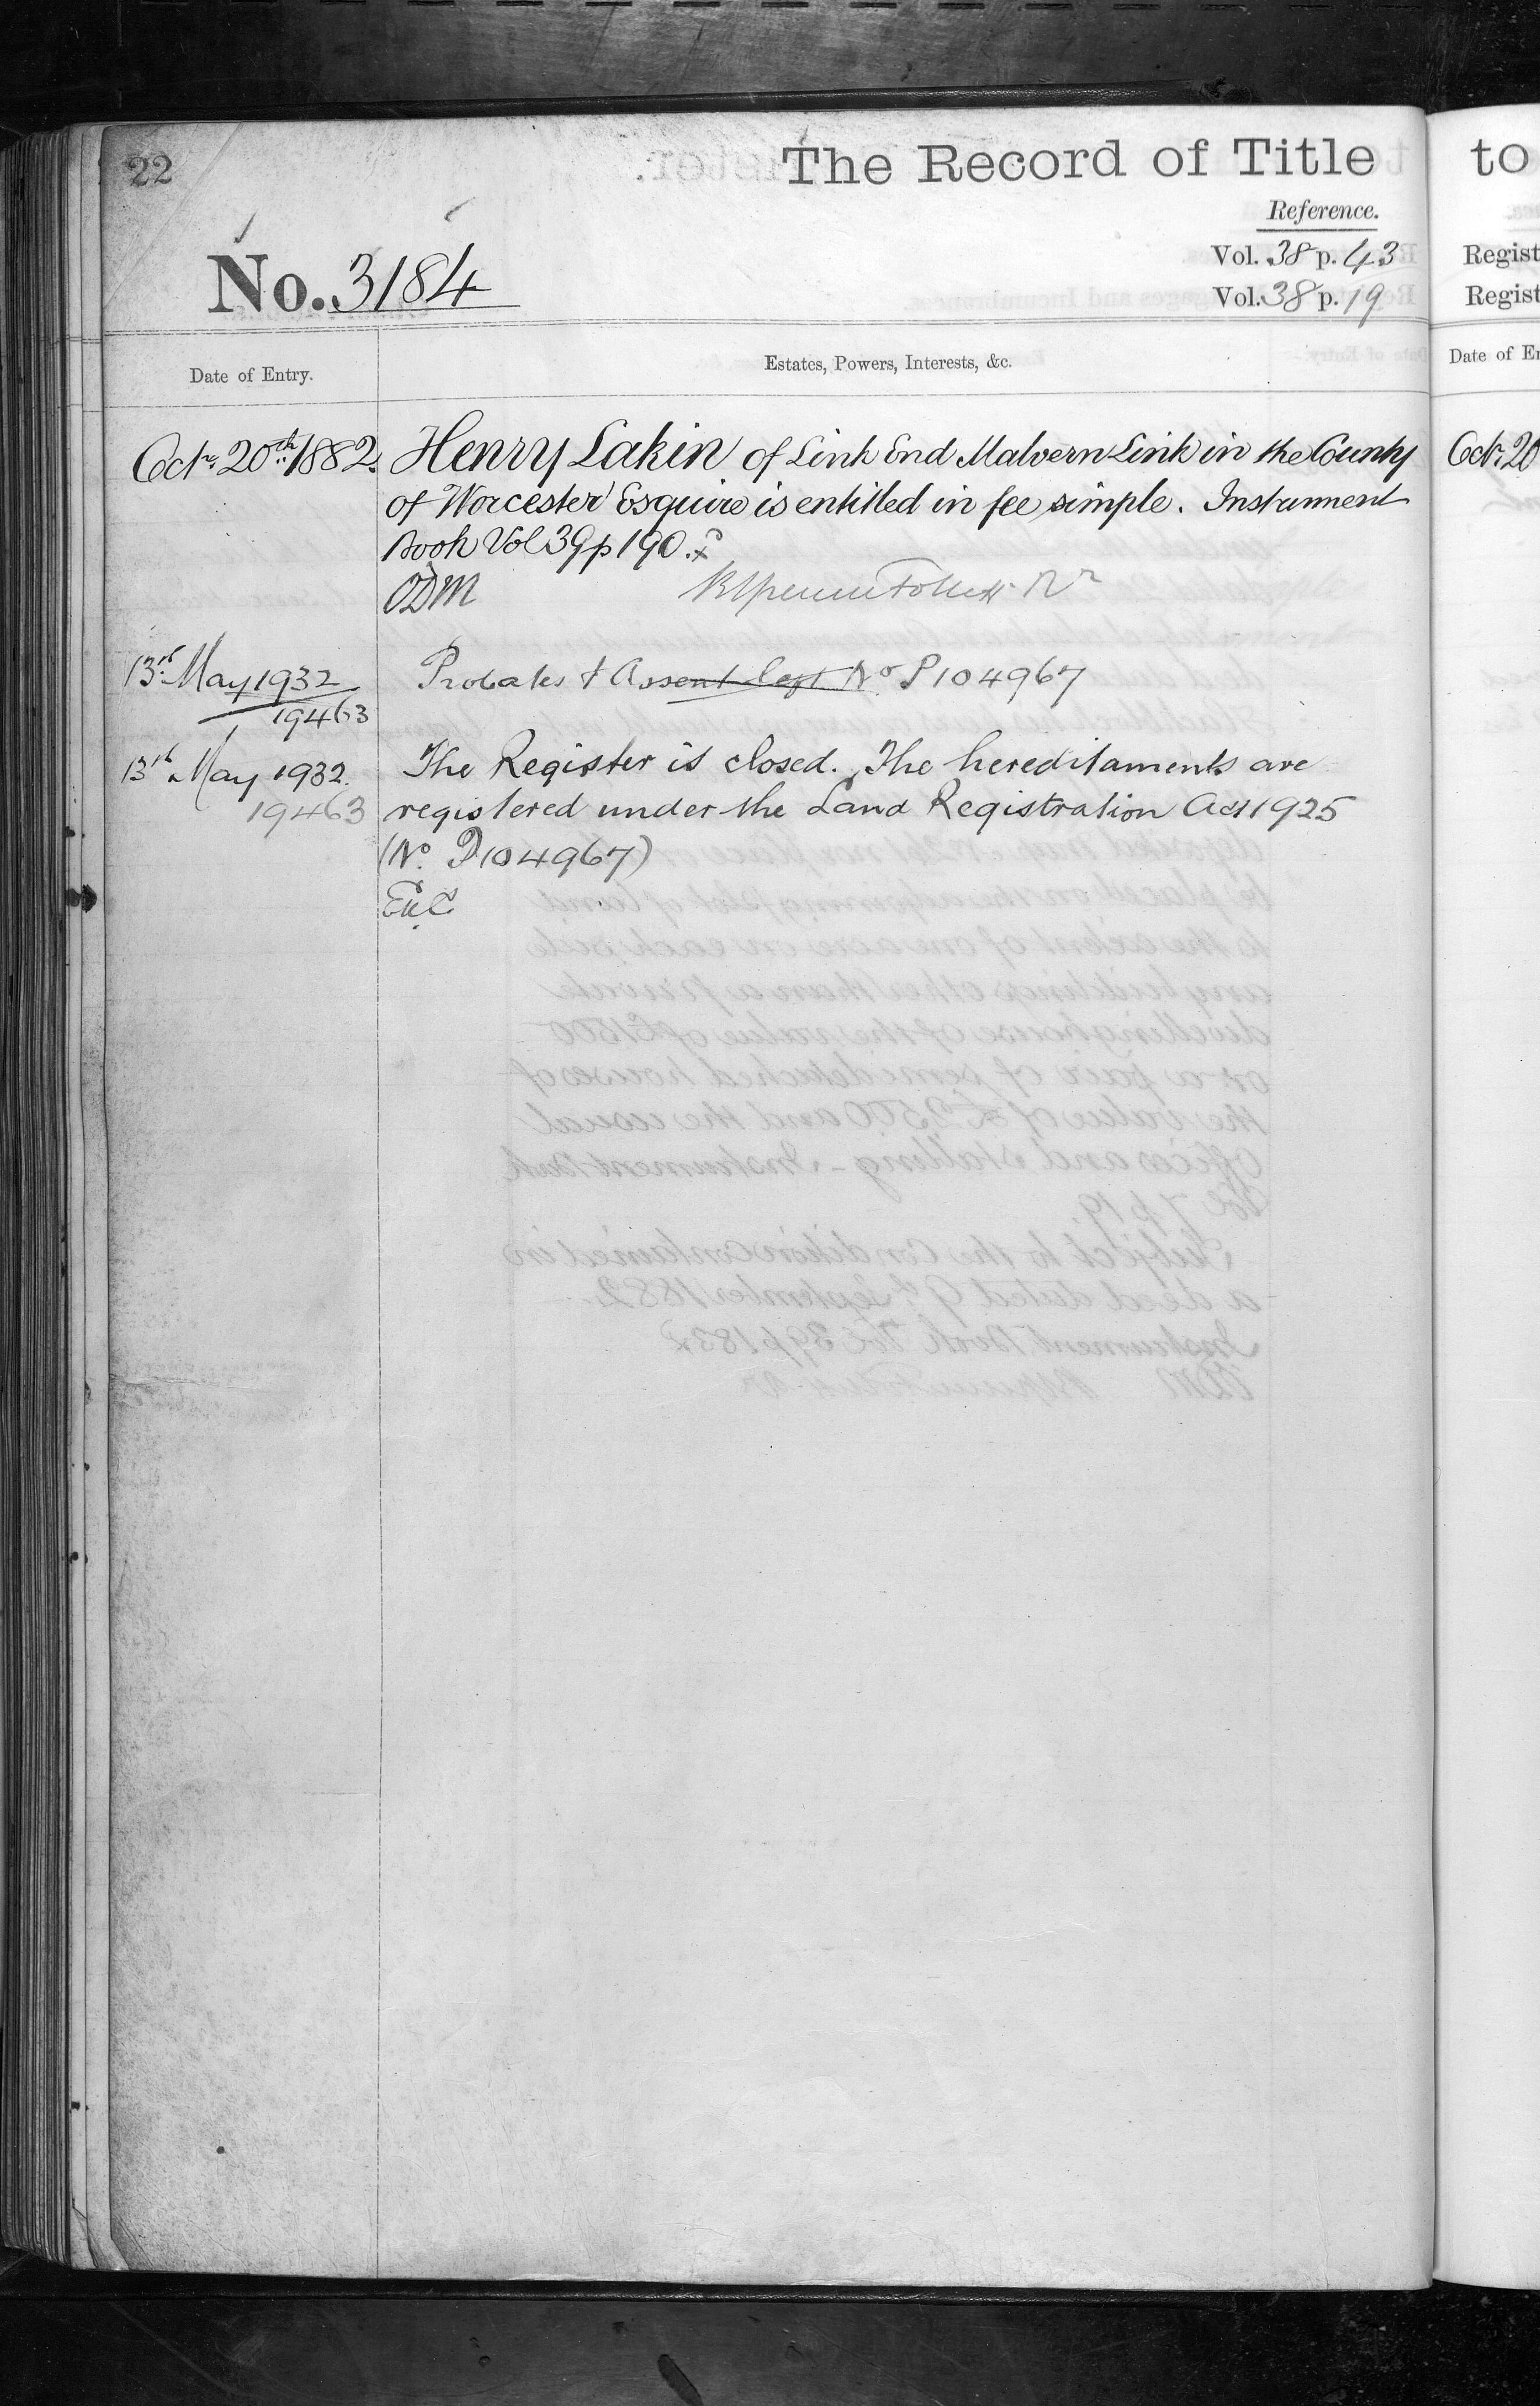 22
The Record of Title
Reference.
Vol. 38 p. 43
Vol. 38 p. 19
No. 3184
Date of Entry.
Estates, Powers, Interests, &c.
Octr. 20th 1882.
Henry Lakin of Link End Malvern Link in the County
of Worcester Esquire is entitled in fee simple. Instrument
Book Vol 39 p 190.
ODM
13th May 1932
19463
Probates & Assent left No P104967
13th May 1932.
19463
The Register is closed. The hereditaments are
registered under the Land Registration Act 1925
(No. P104967)
to
Regist
Regist
Date of En
Octr. 20